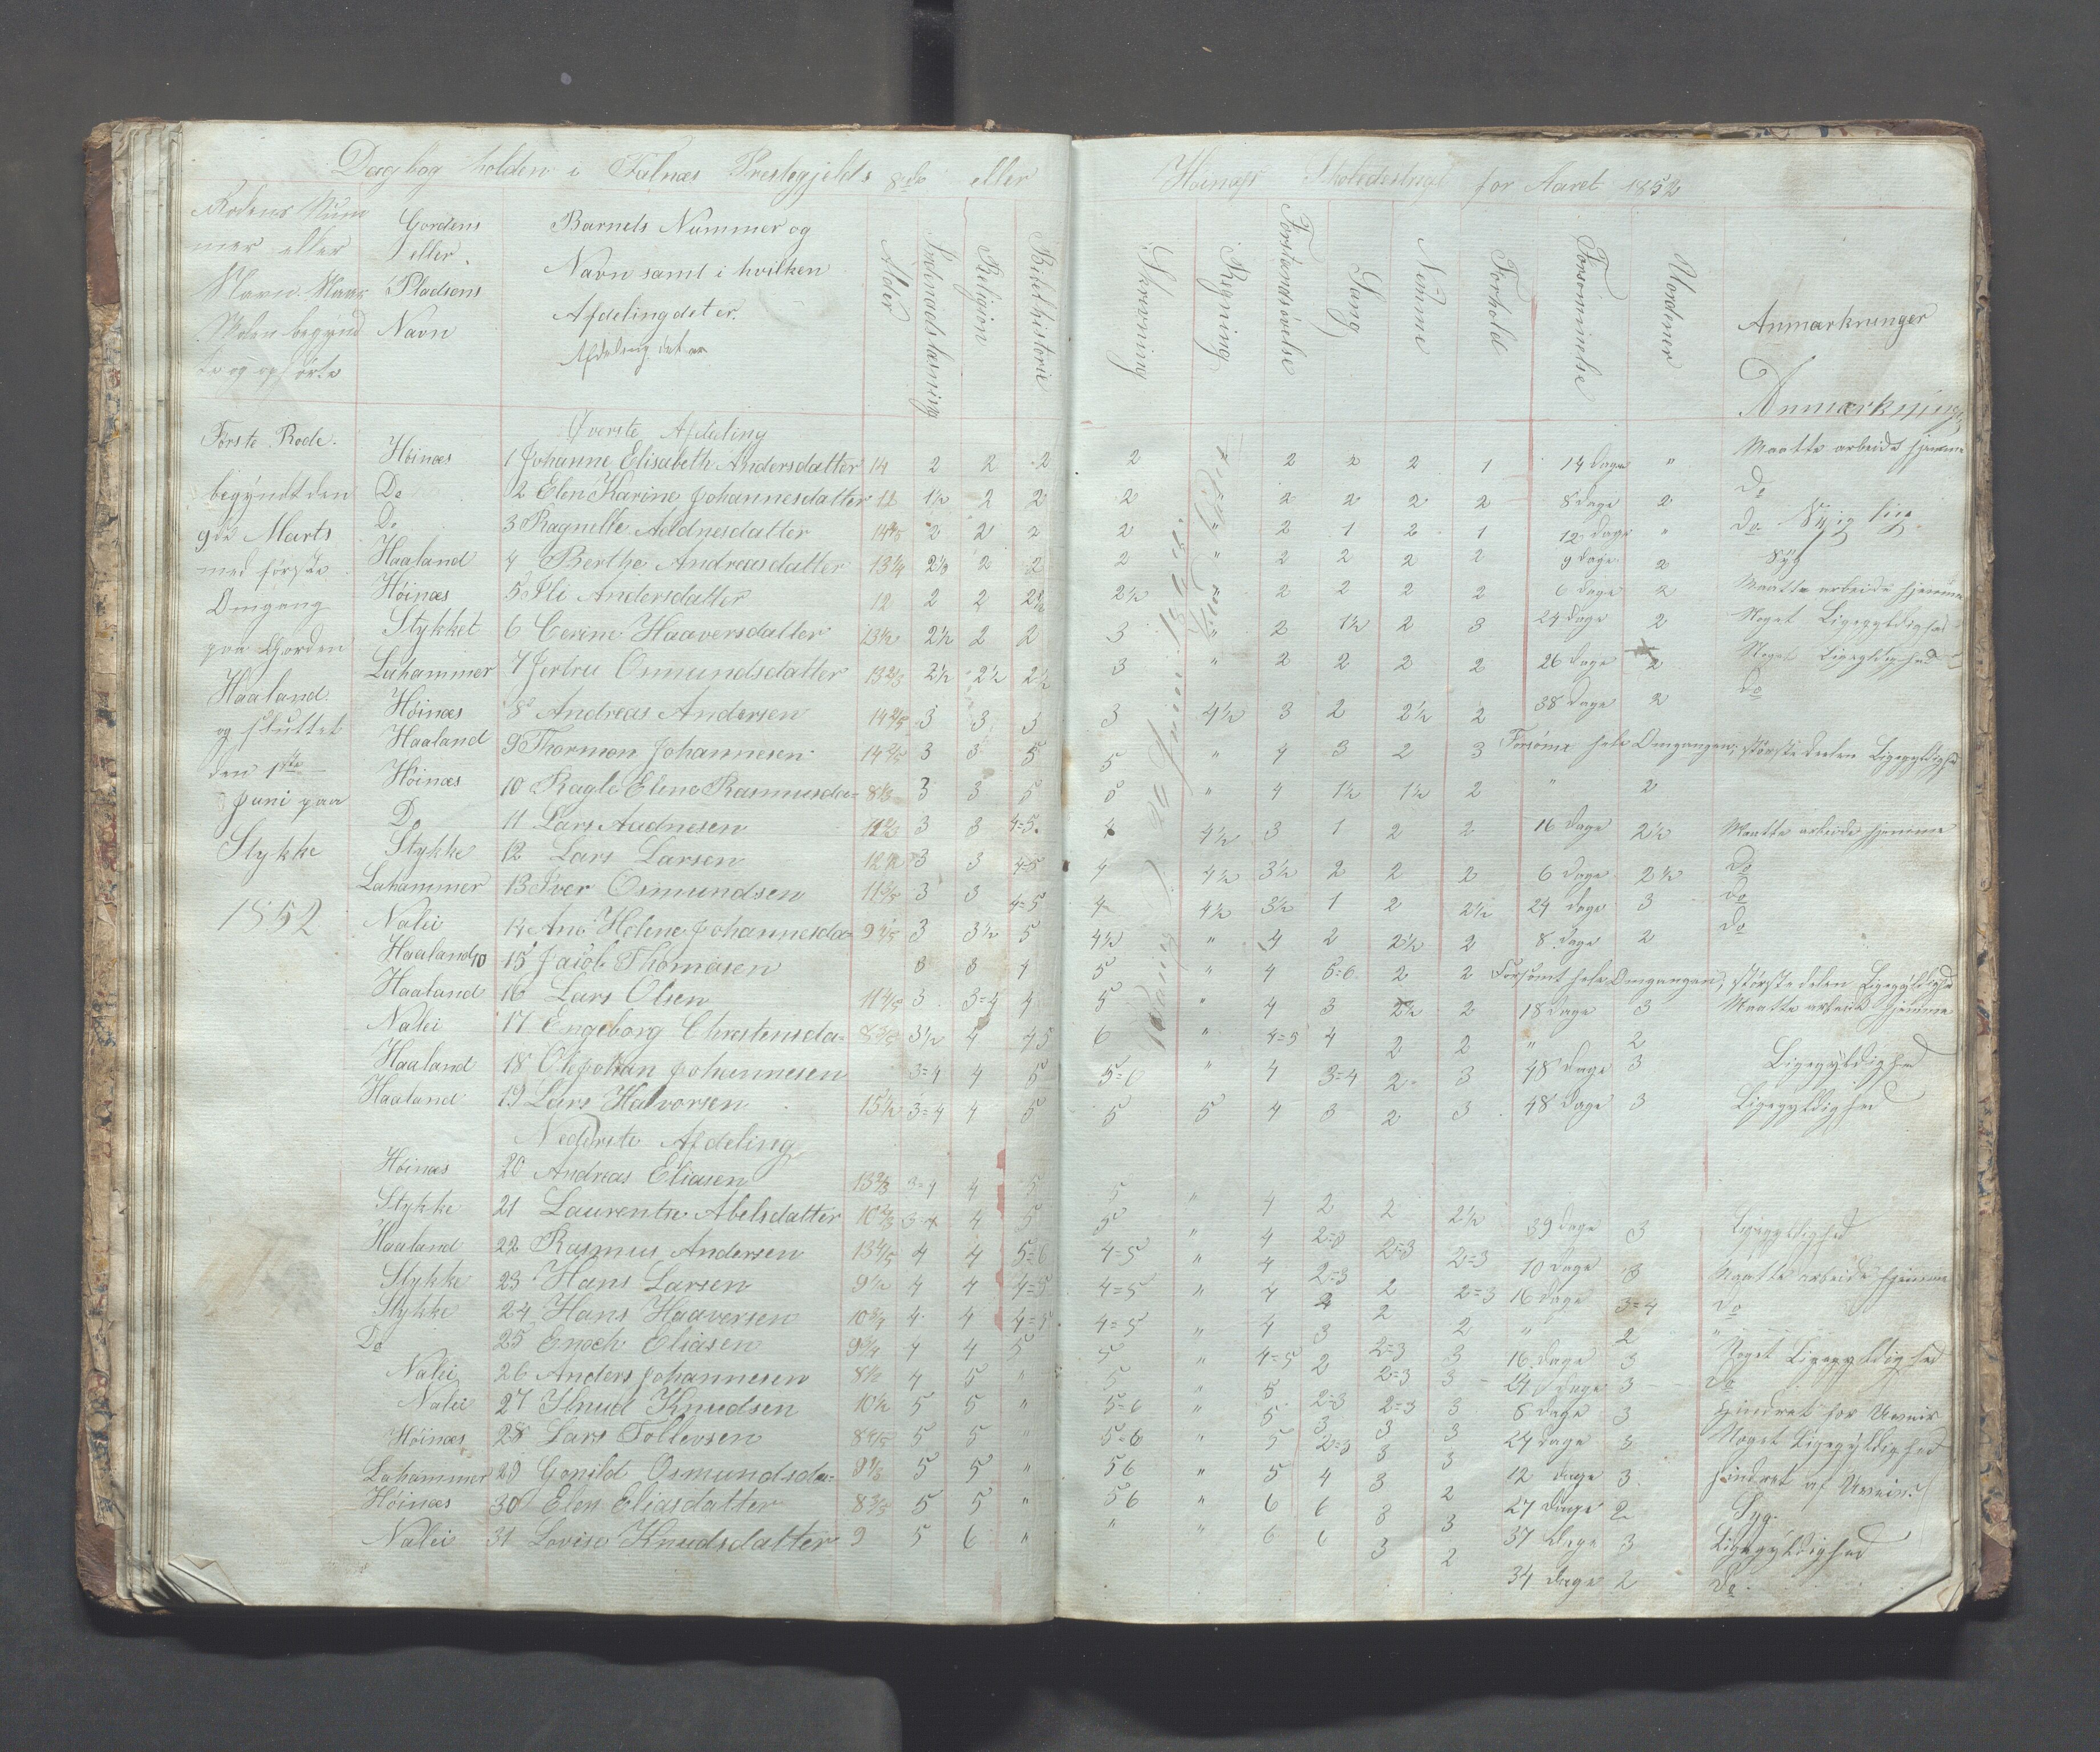 Dagbog holden i Falnæs Prestegjelds 8de eller Høinæss Skoledestrigt for Aaret 1852
Rodens Num Gordens Barnets Nummer og Alder Indenadslæsning Religion Bibelhistorie Skrivning Regning Forstandsøvelse Sang Nemme Forhold Forsømmelse Anmærkninger
mer eller eller Navn samt i hvilken
Navn. Naar Pladsens Afdeling det er.
Skolen begynd Navn Afdeling det er
te og ophørte Anmærkninger
Øverste Afdeling
Første Rode. Høinæs 1 Johanne Elisabeth Andersdatter 14 2 2 2 2 " 2 2 2 1 14 dage " Maatte arbeide hjemme
begyndt den Do 2 Elen Karine Johannesdatter 12 1½ 2 2 2 " 2 2 2 2 8 dage 2 Do
9de Marts Do 3 Ragnille Aadnesdatter 14 2 2 2 2 " 2 1 2 1 12 dage " Do
med første Haaland 4 Berthe Andreasdatter 13¼ 2½ 2 2 2 " 2 2 2 2 9 dage 2 Syg
Omgang Høinæs 5 Ili Andersdatter 12 2 2 2½ 2½ " 2 2 2 2 6 dage 2 Maatte arbeide hjemme
paa Gorden Stykket 6 Cerine Haaversdatter 13½ 2½ 2 2 3 " 2 1½ 2 3 24 dage 2 Noget Ligegyldighed
Haaland Lahammer 7 Jertru Osmundsdatter 13⅔ 2½ 2½ 2½ 3 " 2 2 2 2 26 dage 2 Noget Ligegyldighed
og sluttet Høinæs 8 Andreas Andersen 14 3 3 3 3 4½ 3 2 2½ 2 38 dage 2 Do
den 1ste Haaland 9 Thormon Johannesen 14 3 3 5 5 " 4 3 2 3 Forsømt hele Omgangen, største delen Ligegyldighed
Juni paa Høinæs 10 Ragle Elene Rasmusda= 8 3 3 5 5 " 4 1½ 1½ 2 " 2
Do 11 Lars Aadnesen 11 3 3 4=5 4 4½ 3 1 2 2 16 dage 2½ Maatte arbeide hjemme
Stykke Stykke 12 Lars Larsen 12½ 3 3 4=5 4 4½ 3½ 2 2 2 6 dage 2½ Do
Lahammer 13 Iver Osmundsen 11 3 3 4=5 4 4½ 3½ 1 2 2½ 24 dage 3 Do
1852 Nalei 14 Ane Helene Johannesda= 9 3 3½ 5 4½ " 4 2 2½ 2 8 dage 2 Do
Haaland 10 15 Jacob Thomasen 3 3 4 5 " 4 5=6 2 2 Forsømt hele Omgangen, største delen Ligegyldighed
Haaland 16 Lars Olsen 11 3 3=4 4 5 " 4 3 2½ 2 18 dage 3 Maatte arbeide hjemme
Nalei 17 Engeborg Chrestensda= 8 3½ 4 45 6 " 4=5 4 2 2 " 2
Haaland 18 Ole Johan Johannesen 3=4 4 5 5=6 " 4 3=4 2 3 48 dage 3 Ligegyldighed
Haaland 19 Lars Halvorsen 15½ 3=4 4 5 5 5 4 3 2 3 48 dage 3 Ligegyldighed
Nederste Afdeling
Høinæs 20 Andreas Eliasen 13⅔ 3=4 4 5 5 " 4 2 2 2½ 39 dage 3 Ligegyldighed
Stykke 21 Laurentse Abelsdatter 10⅔ 3=4 4 5 5 " 4 2=3 2=3 2=3 10 dage 3 Maatte arbeide hjemme
Haaland 22 Rasmus Andersen 13 4 4 5=6 4=5 " 4 2=3 2 2=3 16 dage 3=4 Do
Stykke 23 Hans Larsen 9½ 4 4 4=5 4=5 " 4 2 2 2 " 2 "
Stykke 24 Hans Haaversen 10¾ 4 4 4=5 4=5 " 4 3 2=3 3 16 dage 3 Noget Ligegyldighed
Do 25 Enoch Eliasen 9¾ 4 4 5 5 " 4=5 2 2=3 3 24 dage 3 Do
Nalei 26 Anders Johannesen 8½ 4 5 " 5 " 5 2=3 2=3 3 8 dage 3 Hindret for Uveir
Nalei 27 Knud Knudsen 10½ 5 5 " 5=6 " 5 3 3 3 24 dage 3 Noget Ligegyldighed
Høinæs 28 Lars Tollevsen 8 5 5 " 5=6 " 5 2=3 3 3 12 dage 3 hindret af Uveir
Lahammer 29 Gonild Osmundsda= 9 5 5 " 56 " 5 4 3 2 27 dage 2 Syg
Høinæs 30 Elen Eliasdatter 8 5 5 " 56 " 6 6 3 3 37 dage 3 Ligegyldighed
Nalei 31 Lovise Knudsdatter 9 5 6 " " " 6 6 3 2 34 dage 2 Do